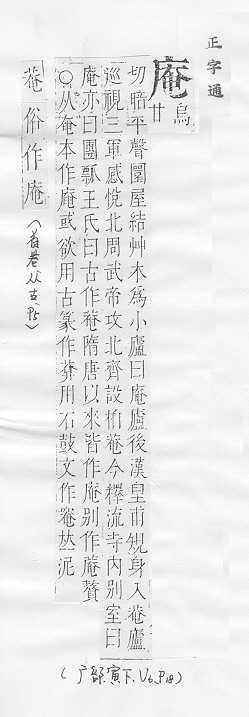 正字通
庵
烏
甘
切暗平聲圜屋結艸木為小廬曰庵廬後漢皇甫規身入菴廬
巡視三軍感悅北周武帝攻北齊設栢菴今釋流寺內別室曰
庵亦曰團瓢王氏曰古作菴隋唐以來皆作庵別作蓭贅
○从奄本作庵或欲用古篆作葊用石鼓文作𥁃丛泥
菴俗作庵
(看菴从古.P5)
(广部.寅下.V6.P18)